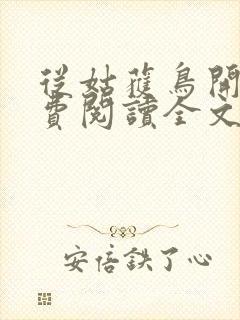 從姑蒦鳥開
費閱讀全文
安倍鉄了心